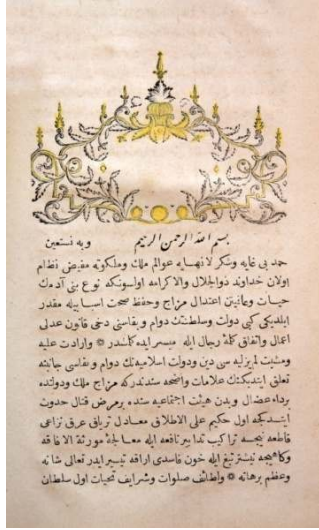 بسم الله الرحمن الرحيم وبه نستعين
حمد بى غايه وشكر لا نهايه عوالم ملك وملكوته مفيض نظام
اولان خداوند ذوالجلال والاكرامه اولسونكه نوع بنى آدمك
حيات ومماتنى اعتدال مزاج وحفظ صحت اسبابيله مقدر
ايلديكى كبى دولت وسلطنتك دوام وبقاسنى دخى قانون عدلى
اعمال واتفاق كلمهٔ رجال ايله ميسر ايده كلمشدر * وارادت عليه
ومشيت لم يزليه سى دين ودولت اسلاميه نك دوام وبقاسى جانبنه
تعلق ايتديكنك علامات واضحه سندندركه مزاج ملك ودولتده
برداء عضال وبدن هيئت اجتماعيه سنده برمرض قتال حدوث
ايتدكجه اول حكيم على الاطلاق معادل ترياق عرق نزاعى
قاطعه نيجه تراكيب تدابير نافعه ايله معالجهٔ مورثة الافاقه
وكاهيجه نيشتر تيغ ايله خون فاسدى اراقه تيسير ايدر تعالى شانه
وعظم برهانه * وظائف صلوات وشرايف تحيات اول سلطان